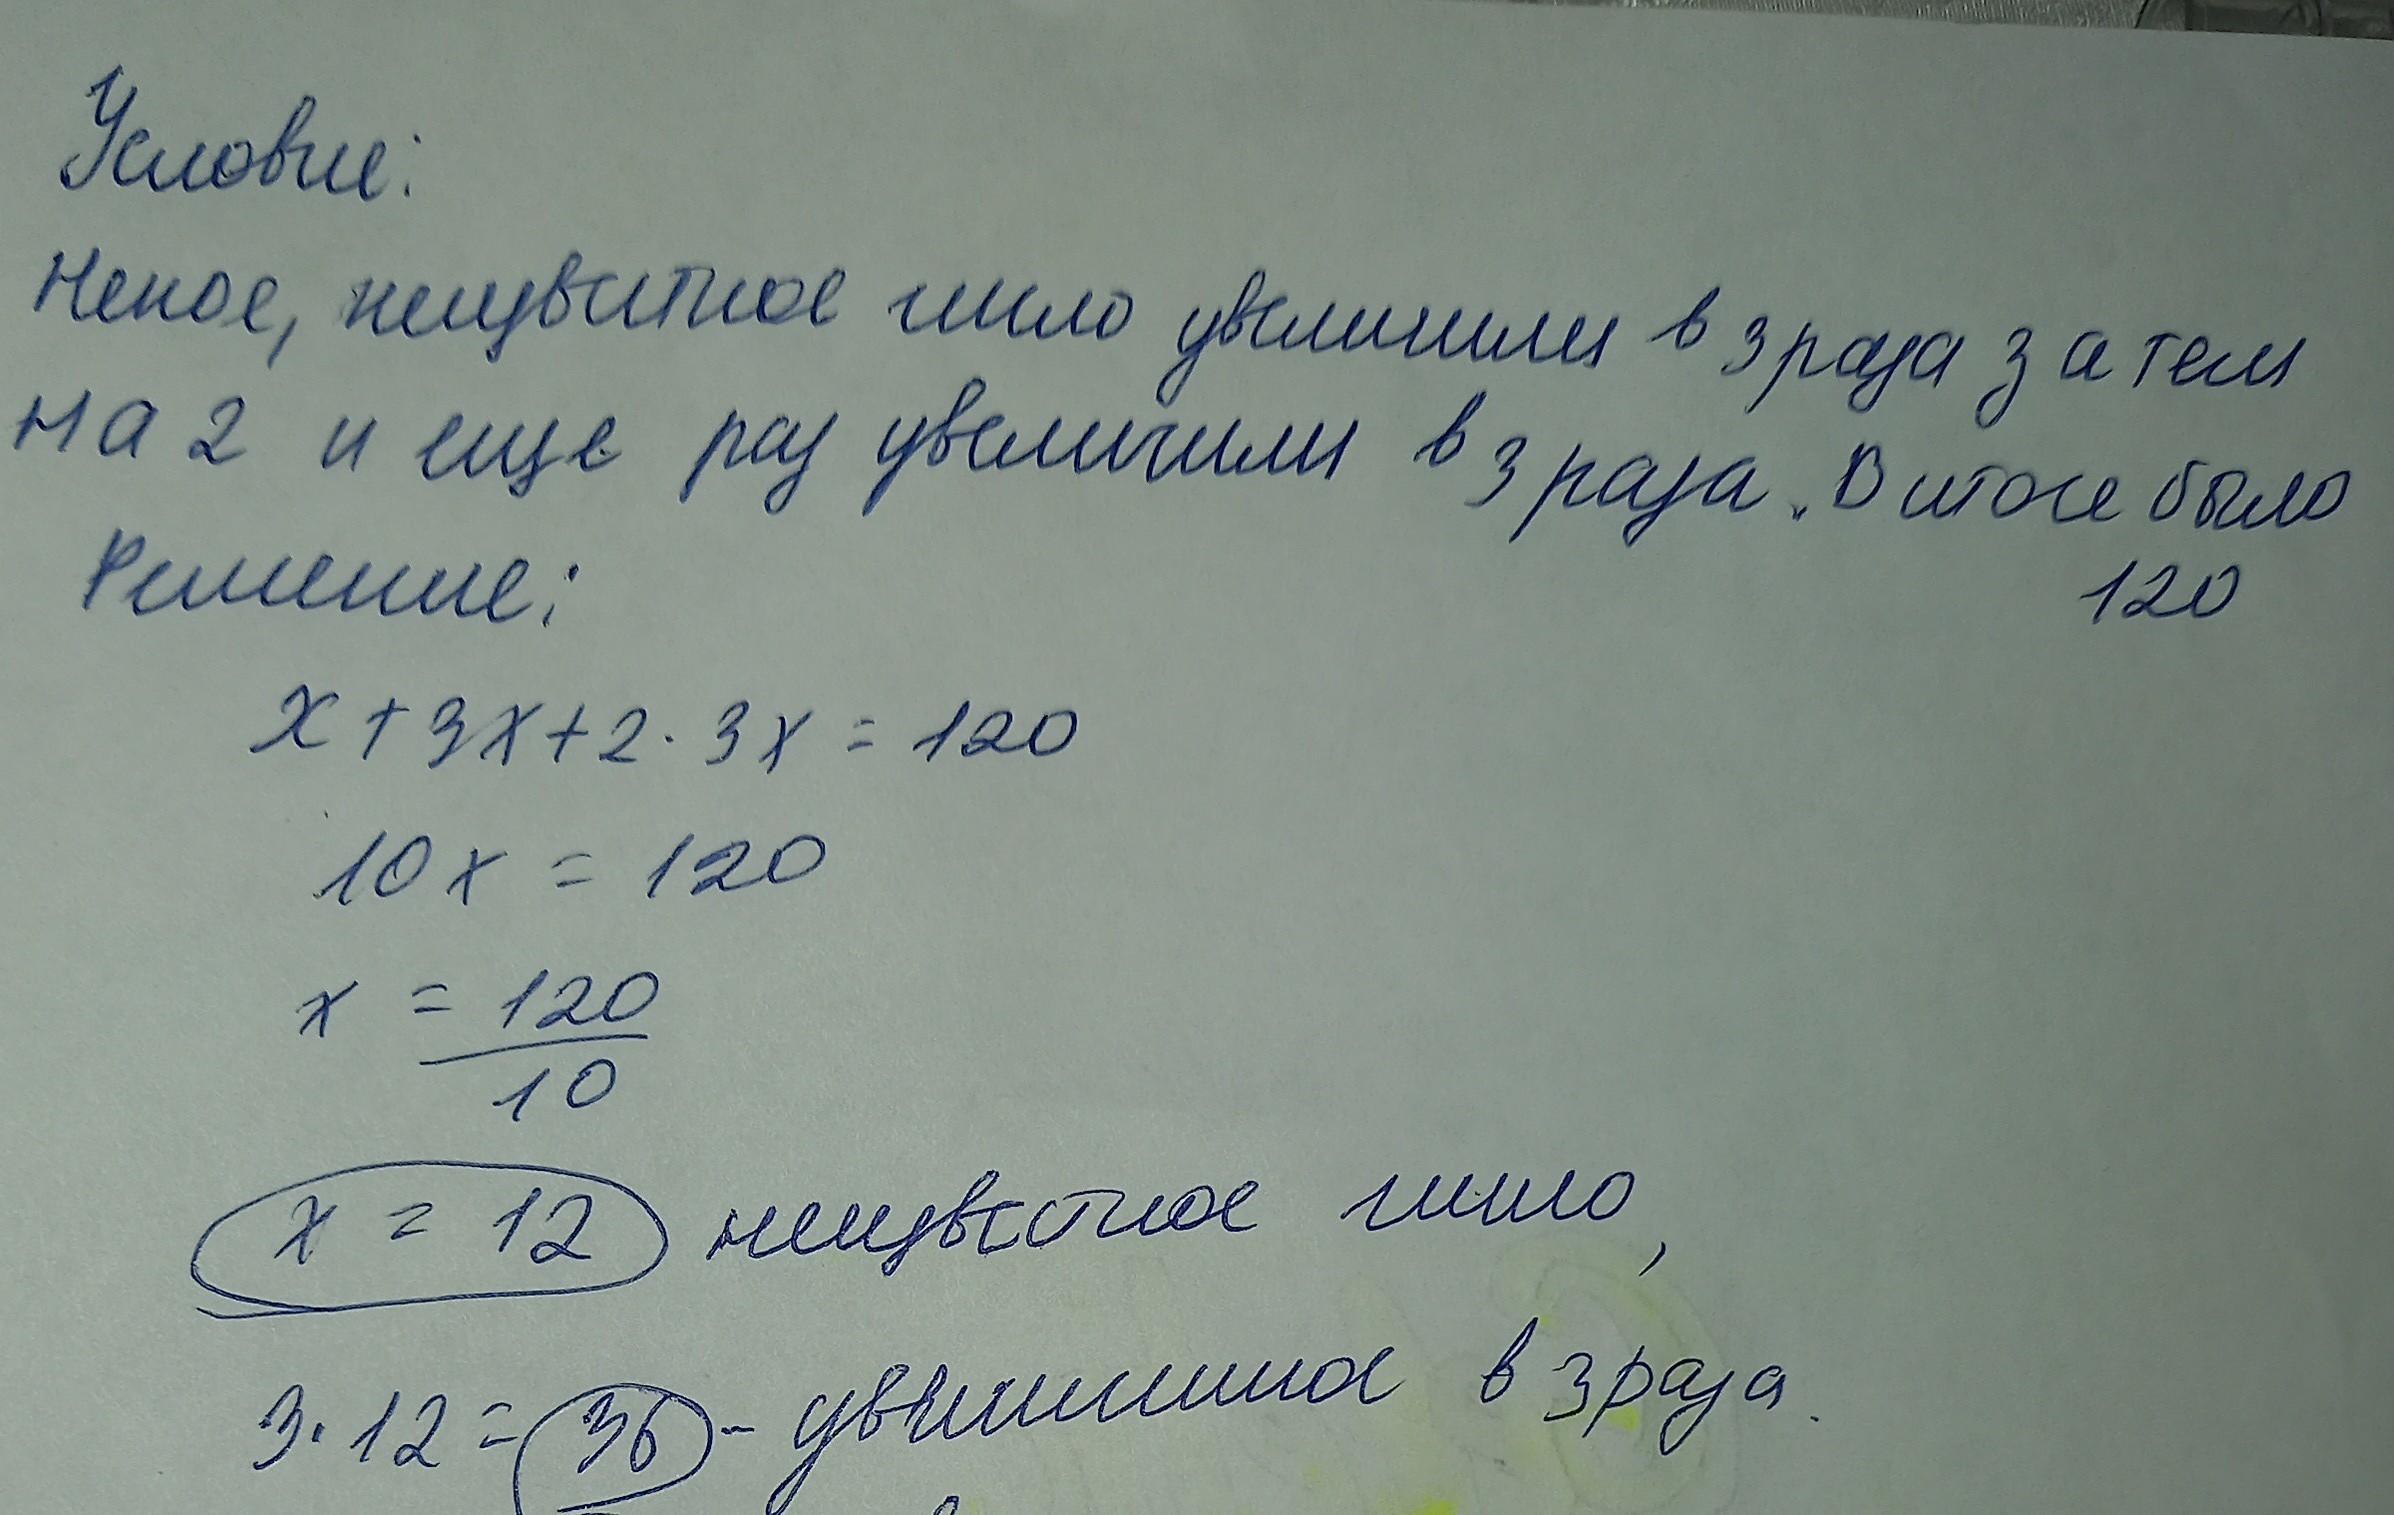 Условие:
Некое, неизвестное число увеличили в 3 раза затем
на 2 и еще раз увеличили в 3 раза. В итоге было
120
Решение:
x + 3x + 2 · 3x = 120
10x = 120
x = 120
10
x = 12 неизвестное число,
3 · 12 = 36 - увеличиное в 3 раза.